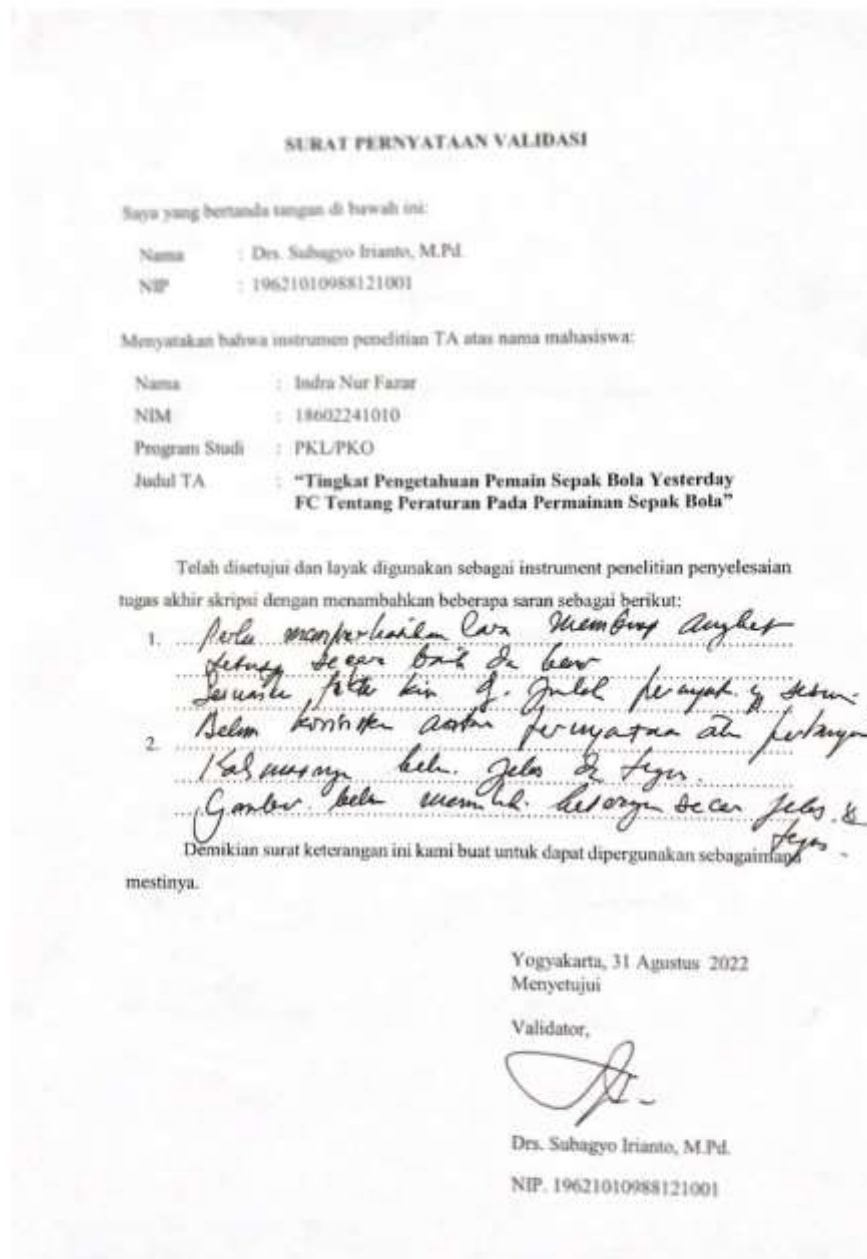 SURAT PERNYATAAN VALIDASI
Saya yang bertanda tangan di bawah ini:
Nama : Drs. Subagyo Irianto, M.Pd.
NIP : 19621010988121001
Menyatakan bahwa instrumen penelitian TA atas nama mahasiswa:
Nama : Indra Nur Fazar
NIM : 18602241010
Program Studi : PKL/PKO
Judul TA : “Tingkat Pengetahuan Pemain Sepak Bola Yesterday
FC Tentang Peraturan Pada Permainan Sepak Bola”
Telah disetujui dan layak digunakan sebagai instrument penelitian penyelesaian
tugas akhir skripsi dengan menambahkan beberapa saran sebagai berikut:
1. Perlu cara angket
secara baik
2. Belum antara pernyataan
jelas
Gambar secara jelas &
tegas.
Demikian surat keterangan ini kami buat untuk dapat dipergunakan sebagaimana
mestinya.
Yogyakarta, 31 Agustus 2022
Menyetujui
Validator,
Drs. Subagyo Irianto, M.Pd.
NIP. 19621010988121001